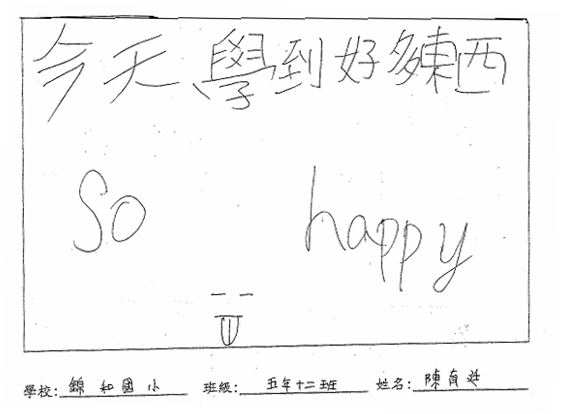 今天學到好多東西
So happy
學校: 錦和國小 班級: 五年十二班 姓名: 陳育